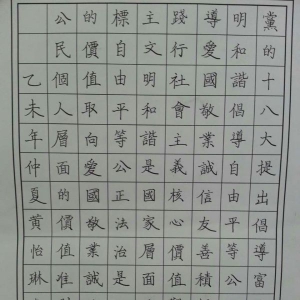 黨的十八大提出倡導富
明和諧倡導自由平等公
導愛國敬業誠信友善積
踐行社會主義核心價值
主文明和諧是國家層面
標自由平等公正法治是
的價值取向愛國敬業誠
公民個人層面的價值准
乙未年仲夏黄怡琳